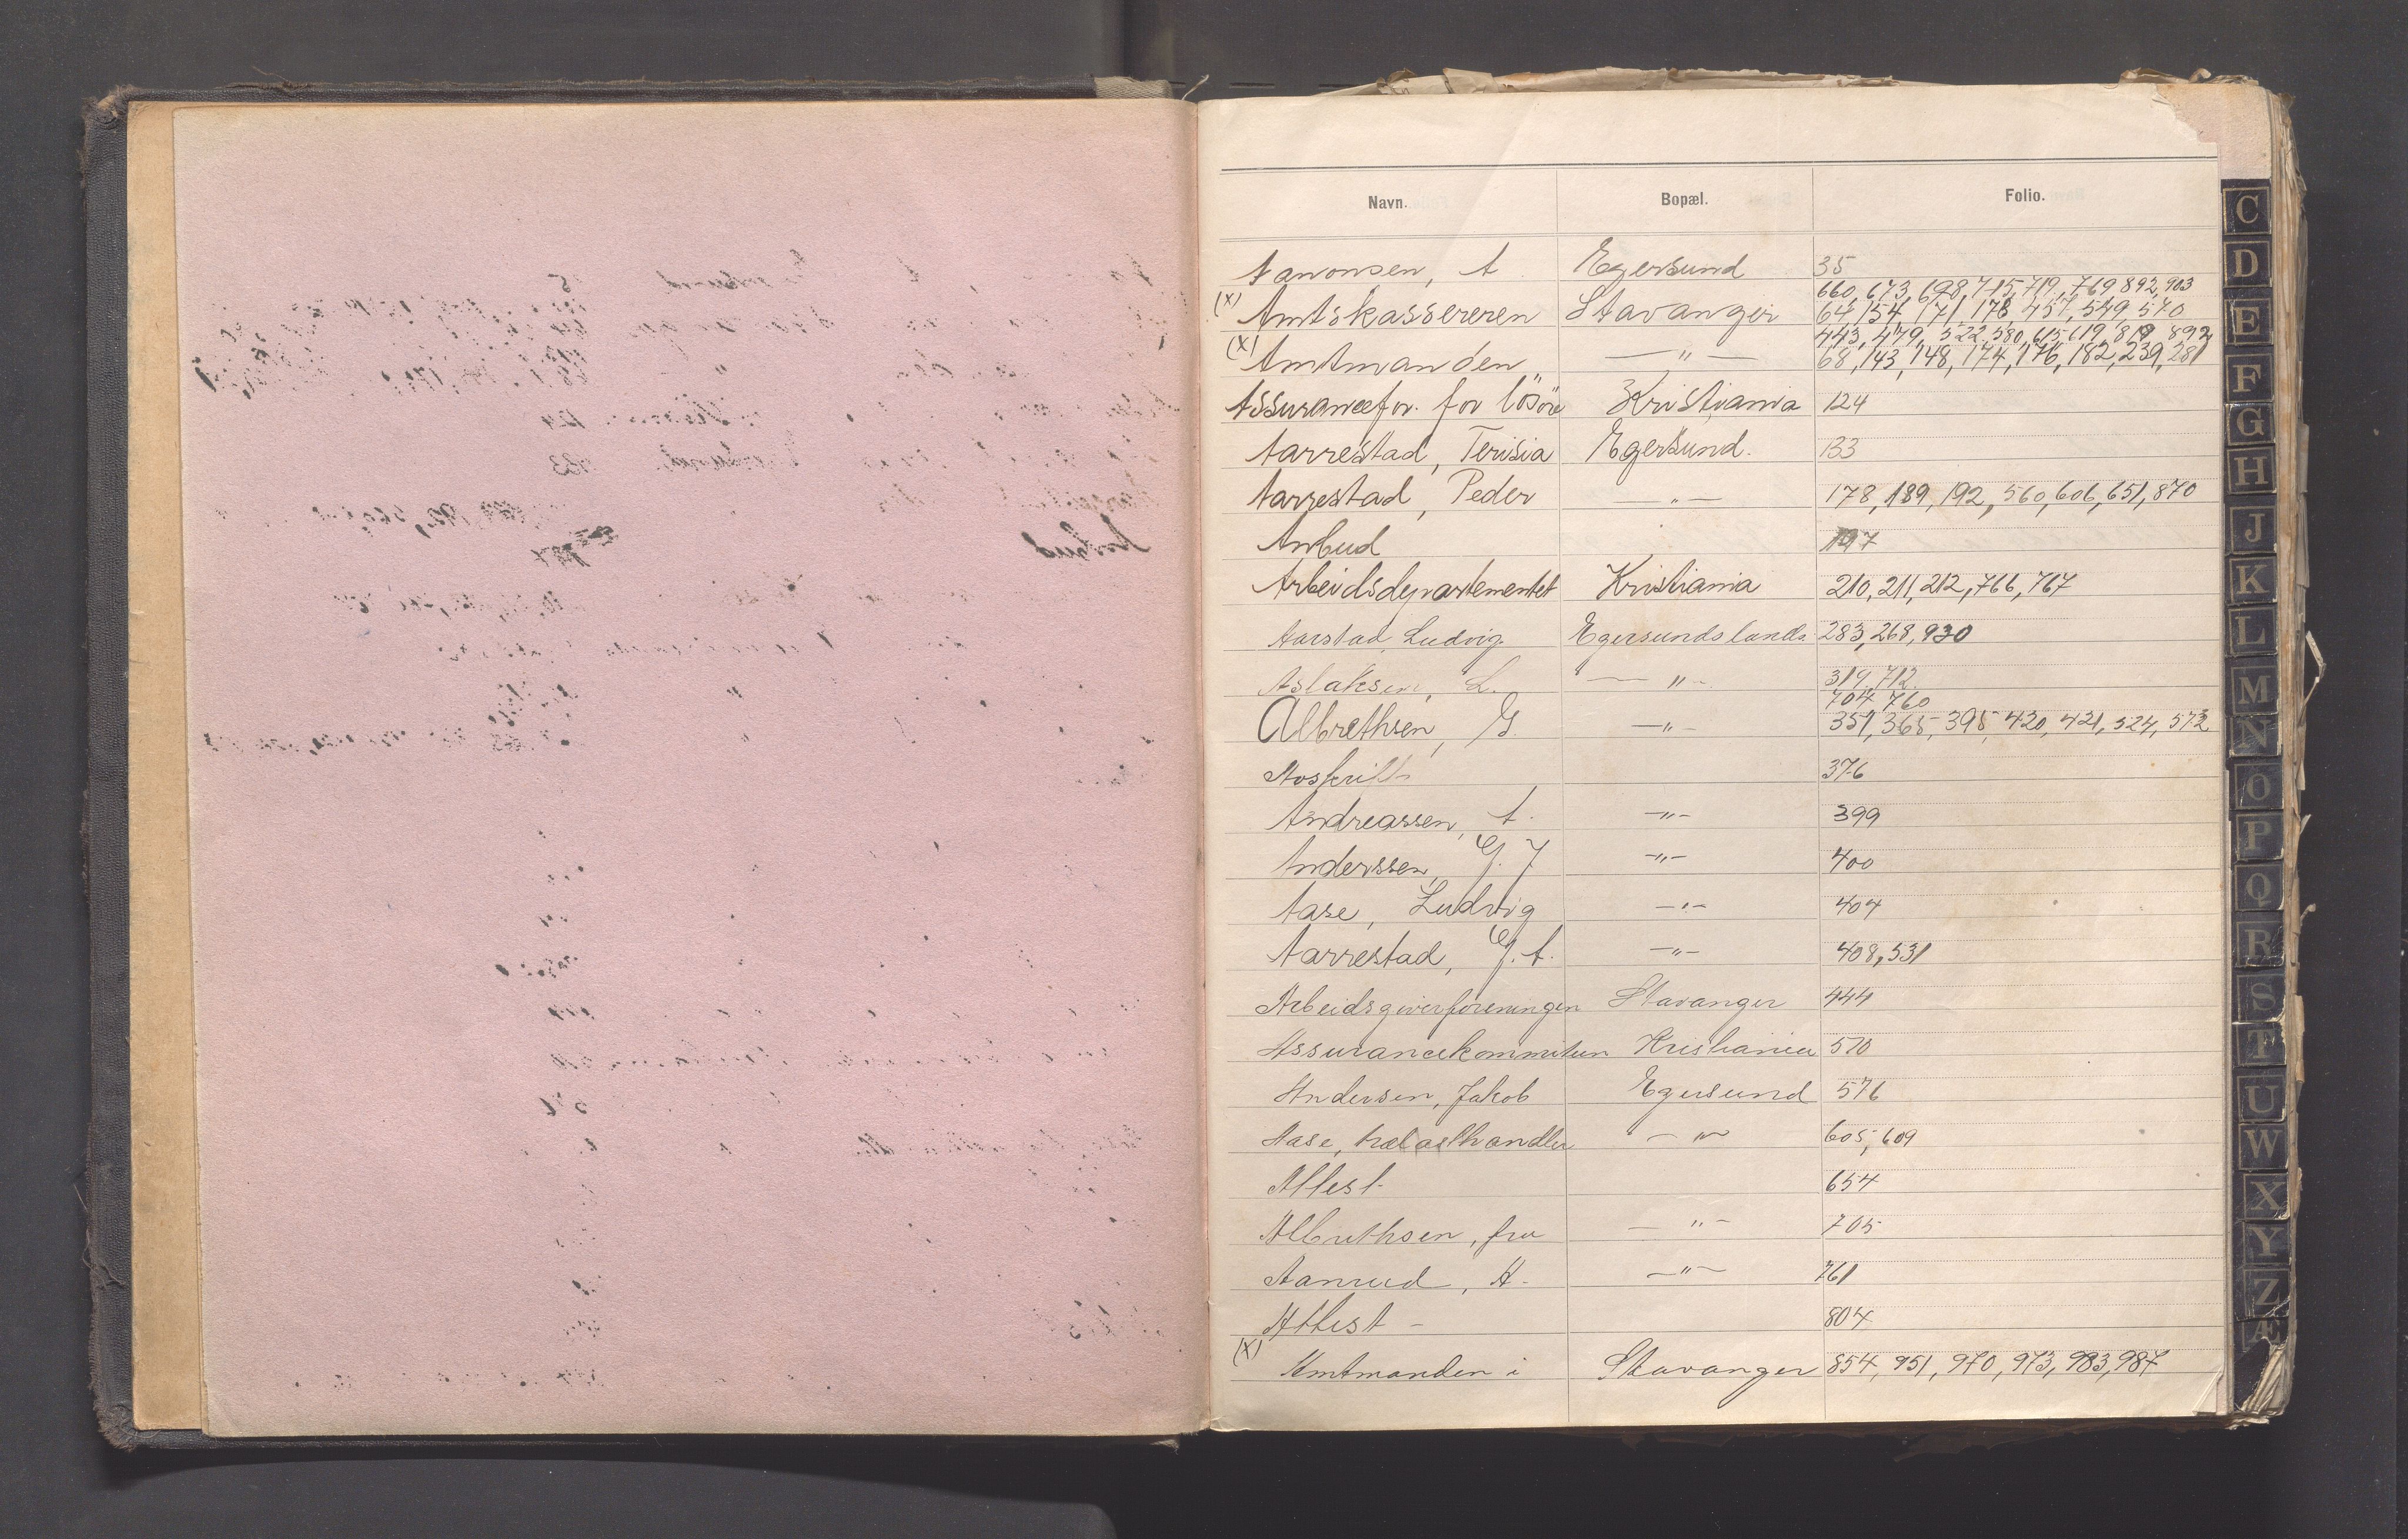 Navn. Bopæl. Folio.
Aanonsen, A. Egersund 35
660, 673, 698, 715, 719, 769 892, 903
(X) Amtskassereren Stavanger 64, 154, 171, 178 457, 549 570
443, 479, 522, 580, 615, 619, 819, 892
(X) Amtmanden —„— 68, 143, 148, 174, 176, 182, 239, 281
Assurancefor. for lösöre Kristiania 124
Aarrestad, Terisia Egersund. 133
Aarrestad, Peder —„— 178, 189, 192, 560, 606, 651, 870
Anbud 197
Arbeidsdepartementet Kristiania 210, 211, 212, 766, 767
Aarstad, Ludvig Egersunds lands. 283, 268, 930
Aslaksen, L. —„— 319, 712
704, 760
Albrethsen, G. —„— 351, 365, 395, 420, 421, 524, 572
Avskrift 376
Andreassen, A. —„— 399
Anderssen, G. J —„— 400
Aase, Ludvig —„— 404
Aarrestad, G. A. —„— 408, 531
Arbeidsgiverforeningen Stavanger 444
Assurancekommiteen Kristiania 510
Andersen, Jakob Egersund 576
Aase, trælasthandler —„— 605, 609
Attest 654
Albrethsen, fru —„— 705
Aanrud, H. —„— 761
Attest – 804
(X) Amtmanden i Stavanger 854, 951, 970, 973, 983, 987
C
D
E
F
G
H
J
K
L
M
N
O
P
Q
R
S
T
U
W
X
Y
Z
Æ